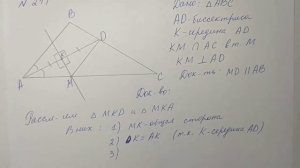 N 241
Дано: △ABC
AD-биссектриса
K-середина AD
KM ∩ AC в т. M
KM ⊥ AD
Док-ть: MD ∥ AB
B
D
K
A
M
C
Док-во:
Рассм-им △ MKD и △ MKA
В них: 1) MK-общая сторона
2) DK = AK (т.к. K-середина AD)
3)